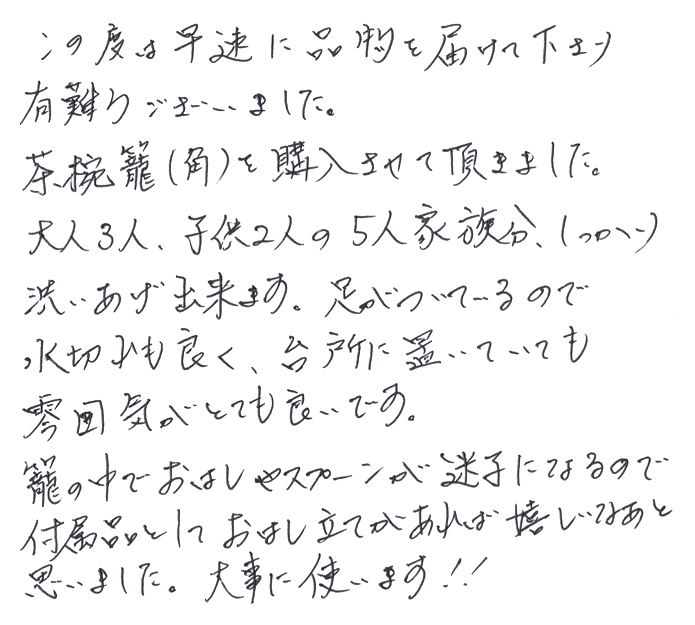 この度は早速に品物を届けて下さり
有難うございました。
茶椀籠(角)を購入させて頂きました。
大人3人、子供2人の5人家族分、しっかり
洗いあげ出来ます。足がついているので
水切れも良く、台所に置いていても
雰囲気がとても良いです。
籠の中でおはしやスプーンが迷子になるので
付属品としておはし立てがあれば嬉しいなあと
思いました。大事に使います!!